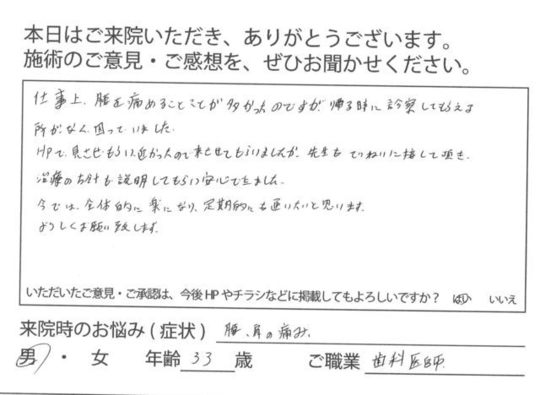 本日はご来院いただき、ありがとうございます。
施術のご意見・ご感想を、ぜひお聞かせください。
仕事上、腰を痛めることことが多かったのですが、帰る時に診察してもらえる
所がなく困っていました。
HPで見させもらい近かったので来させてもらいましたが、先生も ていねいに接して頂き、
治療の方針も説明してもらい安心できました。
今では、全体的に楽になり、定期的にも通いたいと思います。
よろしくお願い致します。
いただいたご意見・ご承認は、今後HPやチラシなどに掲載してもよろしいですか？ はい いいえ
来院時のお悩み(症状) 腰、肩の痛み
男・女 年齢 33 歳 ご職業 歯科医師